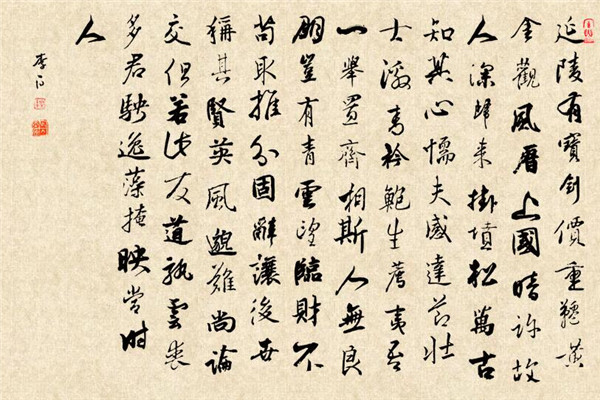 延陵有寶劍價重韆黃
金觀風曆上國暗許故
人深歸來掛墳松萬古
知其心懦夫感達節壯
士激青衿鮑生薦夷吾
一舉置齊相斯人無良
朋豈有青雲望臨財不
苟取推分固辭讓後世
稱其賢英風邈難尚論
交但若此友道孰雲喪
多君騁逸藻掩映當時
人
李白